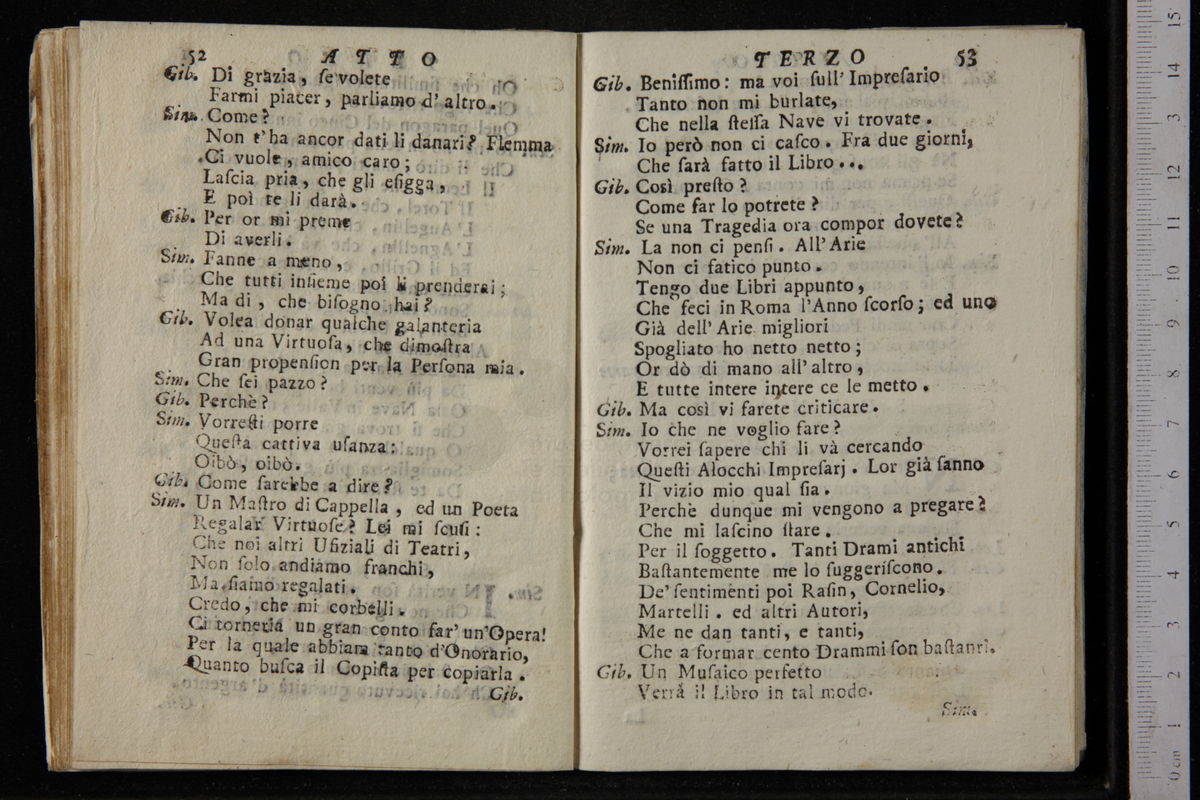 52 ATTO
Gib. Di grazia, ſe volete
Farmi piacer, parliamo d' altro.
Sim. Come?
Non t'ha ancor dati li danari? Flemma
Ci vuole, amico caro;
Laſcia pria, che gli eſigga,
E poi te li darà.
Gib. Per or mi preme
Di averli.
Sim. Fanne a meno,
Che tutti inſieme poi li prenderai;
Ma di, che biſogno hai?
Gib. Volea donar qualche galanteria
Ad una Virtuoſa, che dimoſtra
Gran propenſion per la Perſona mia.
Sim. Che ſei pazzo?
Gib. Perchè?
Sim. Vorreſti porre
Queſta cattiva uſanza:
Oibò, oibò.
Gib. Come ſarebbe a dire?
Sim. Un Maſtro di Cappella, ed un Poeta
Regalar Virtuoſe? Lei mi ſcuſi:
Che noi altri Ufiziali di Teatri,
Non ſolo andiamo franchi,
Ma ſiamo regalati.
Credo, che mi corbelli.
Ci torneria un gran conto far' un'Opera!
Per la quale abbiam tanto d'Onorario,
Quanto buſca il Copiſta per copiarla.
Gib.
TERZO 53
Gib. Beniſſimo: ma voi ſull' Impreſario
Tanto non mi burlate,
Che nella ſteſſa Nave vi trovate.
Sim. Io però non ci caſco. Fra due giorni,
Che ſarà fatto il Libro...
Gib. Così preſto?
Come far lo potrete?
Se una Tragedia ora compor dovete?
Sim. La non ci penſi. All' Arie
Non ci fatico punto.
Tengo due Libri appunto,
Che feci in Roma l'Anno ſcorſo; ed uno
Già dell' Arie migliori
Spogliato ho netto netto;
Or dò di mano all' altro,
E tutte intere intere ce le metto.
Gib. Ma così vi farete criticare.
Sim. Io che ne voglio fare?
Vorrei ſapere chi li và cercando
Queſti Alocchi Impreſarj. Lor già ſanno
Il vizio mio qual ſia.
Perchè dunque mi vengono a pregare?
Che mi laſcino ſtare.
Per il ſoggetto. Tanti Drami antichi
Baſtantemente me lo ſuggeriſcono.
De' ſentimenti poi Raſin, Cornelio,
Martelli. ed altri Autori,
Me ne dan tanti, e tanti,
Che a formar cento Drammi ſon baſtanti.
Gib. Un Muſaico perfetto
Verrà il Libro in tal modo.
Sim.
0 cm 1 2 3 4 5 6 7 8 9 10 11 12 13 14 15